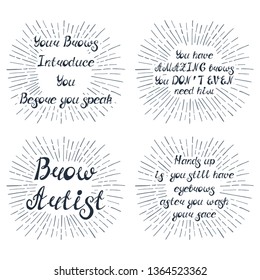 Your Brows
Introduce
You
Before you speak
You have
AMAZING brows
You DON'T EVEN
need him
Brow
Artist
Hands up
if you still have
eyebrows
after you wash
your face
shutterstock.com · 1364523362